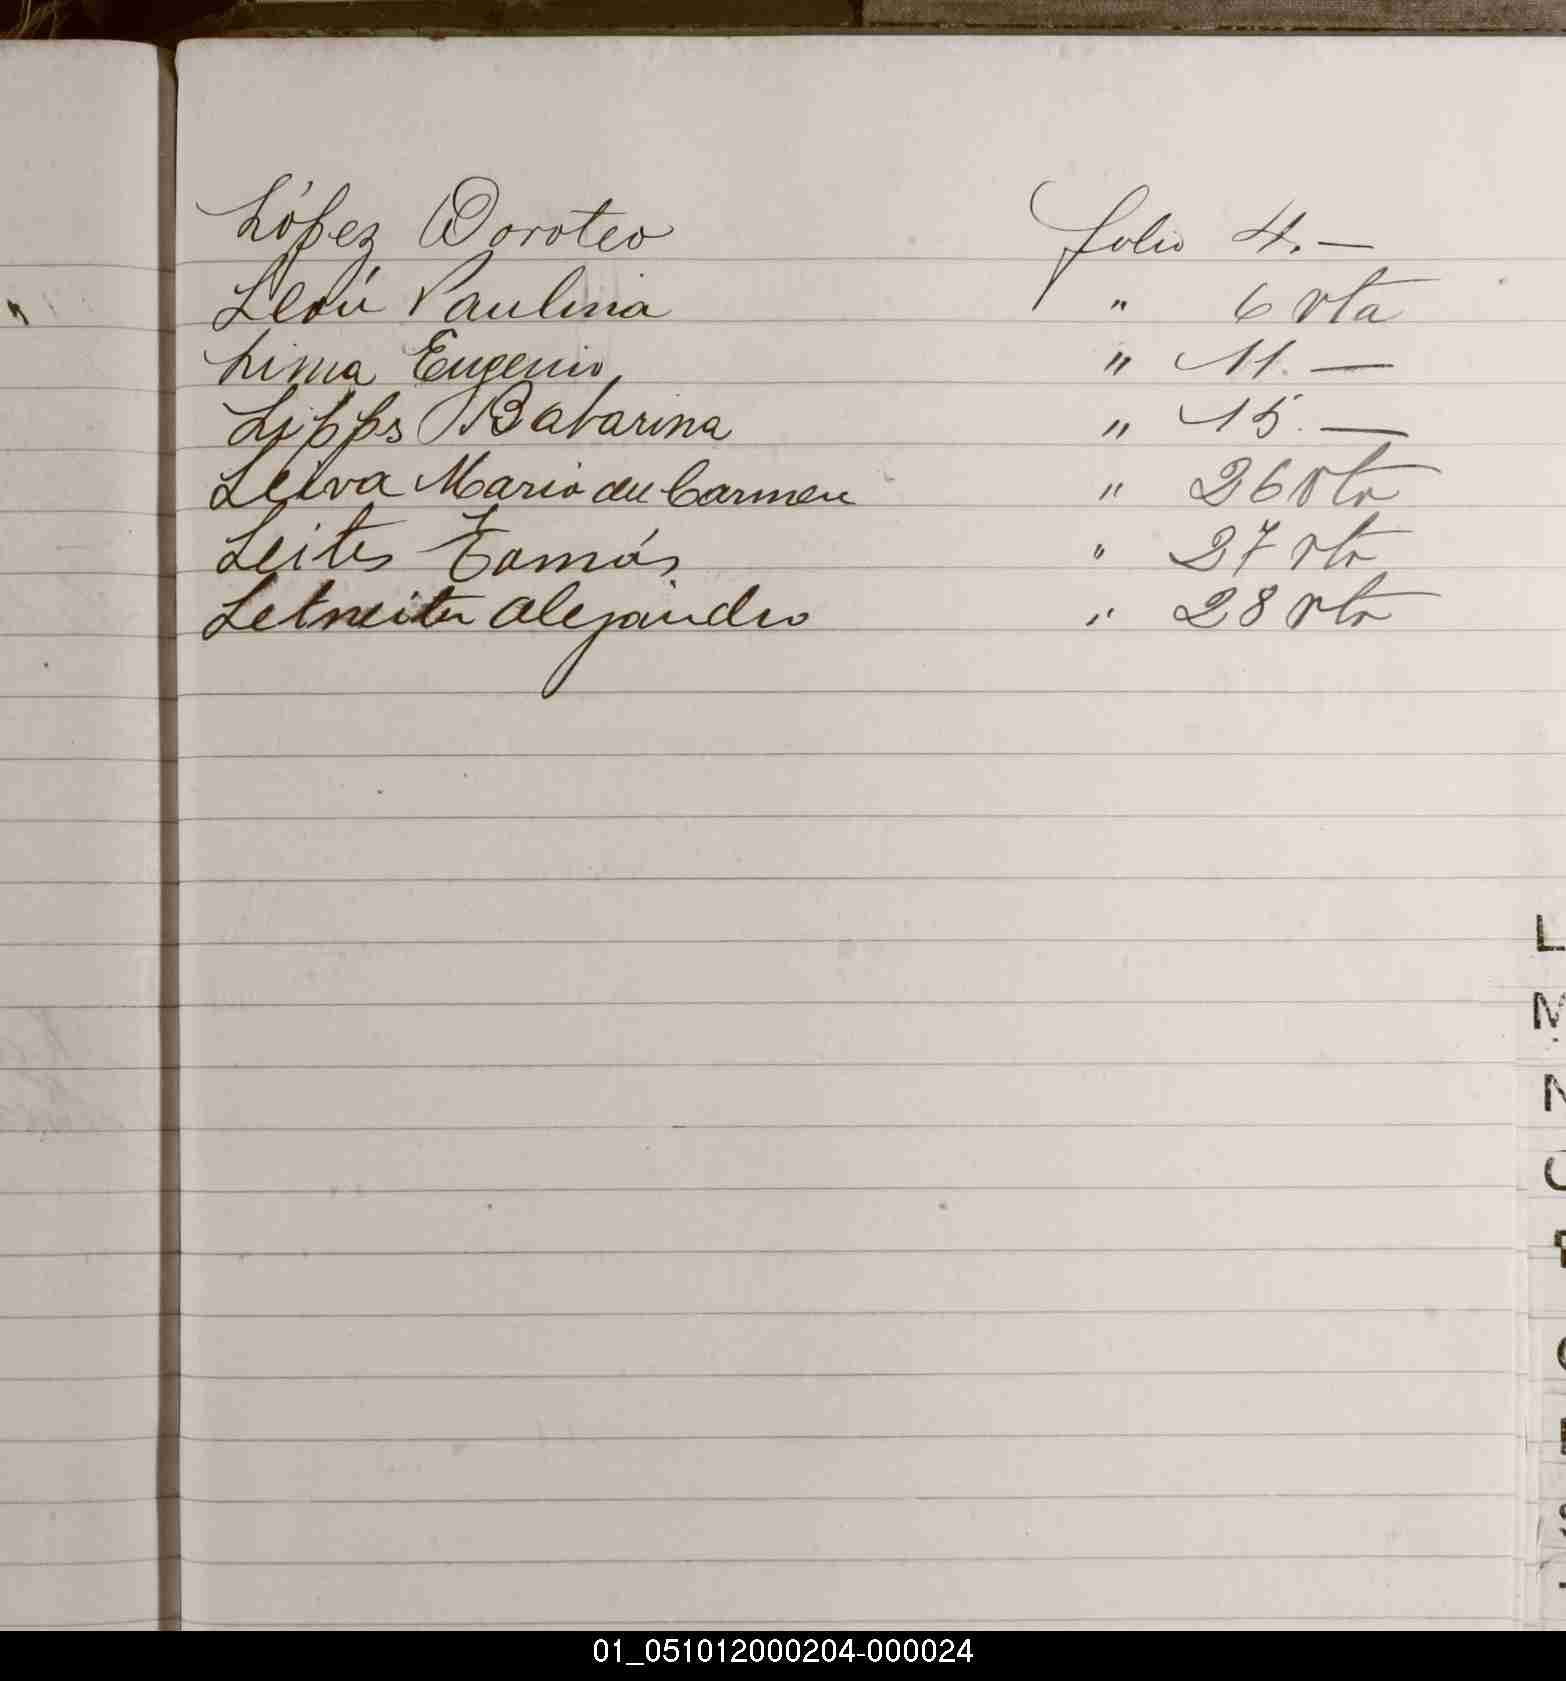 López Doroteo folio 4. —
León Paulina " 6 vta
Lima Eugenio " 11. —
Lipps Babarina " 15. —
Leiva Maria del Carmen " 26 vta
Leites Tomás " 27 vta
Alejandro " 28 vta
L
M
N
O
P
Q
R
S
01_051012000204-000024